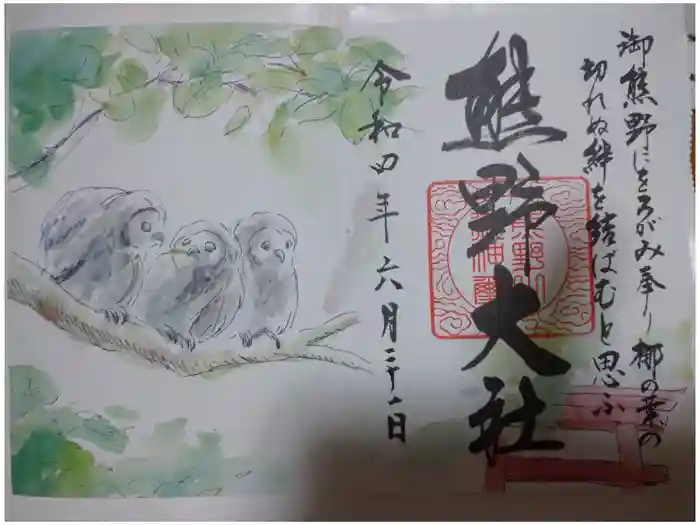 御熊野にをろがみ奉り梛の葉の
切れぬ絆を結ばむと思ふ
熊野大社
令和四年六月二十一日